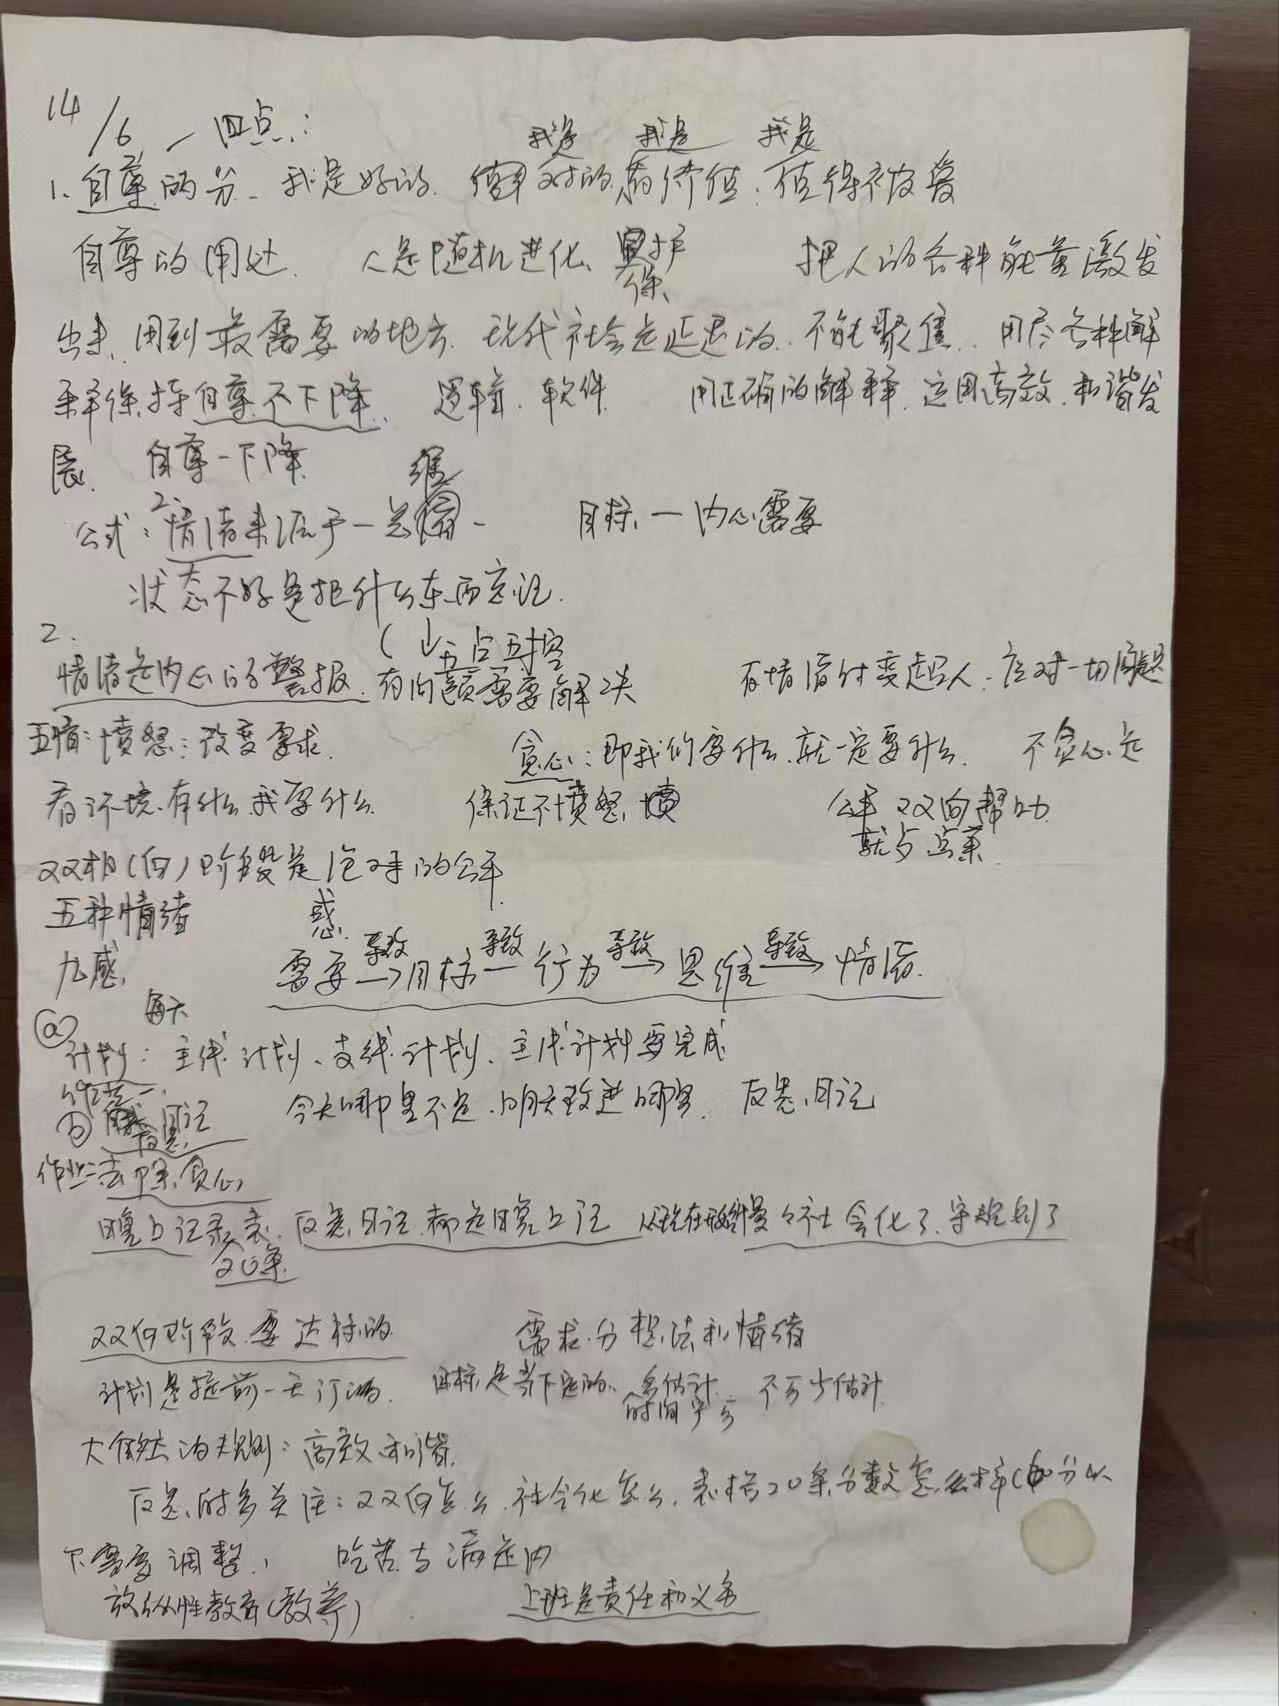 14/6 一四点:
我是 我是 我是
1.自尊的分、我是好的 对的 有价值、值得被爱
自尊的用处、人是随机进化、保护 把人的各种能量激发
出来、用到最需要的地方、现代社会是延迟的、不能聚焦、用尽各种解
释保持自尊不下降、逻辑、软件 用正确的解释、运用高效、和谐发
展、自尊一下降 维
公式:2.情绪来源于一思 - 目标 — 内心需要
状态不好是把什么东西忘记.
2. (山五占五控
情绪是内心的警报、有问题需要解决 有情绪时变超人、应对一切问题
五情:愤怒:改变要求. 贪心:即我们要什么、就一定要什么、不贪心是
看环境有什么我要什么 保证不愤怒、 公平 双向帮助
双相(向)阶段是绝对的公平
五种情绪 惑
九感、 需要 导致→ 目标 导致— 行为 导致→ 思维 导致→ 情绪.
ⓐ 每天
计划:主线计划、支线计划、主线计划要完成
作业一、 今天哪里不足、明天改进哪里、反思、日记
ⓑ 反思 日记
作业二:去除贪心
晚上记录表、反思日记、都是晚上记 从现在开始 社会化了、守规则了
20条
双向阶段、要达标的 需求分想法和情绪
计划是提前一天订的、目标是当下定的、多估计 时间 不可少估计
大自然的规则:高效和谐.
反思时多关注:双向怎么、社会化怎么、表格20条分数怎么样(60分以
下需要调整、 吃苦与满足内
放纵性教育(教养) 上班是责任和义务